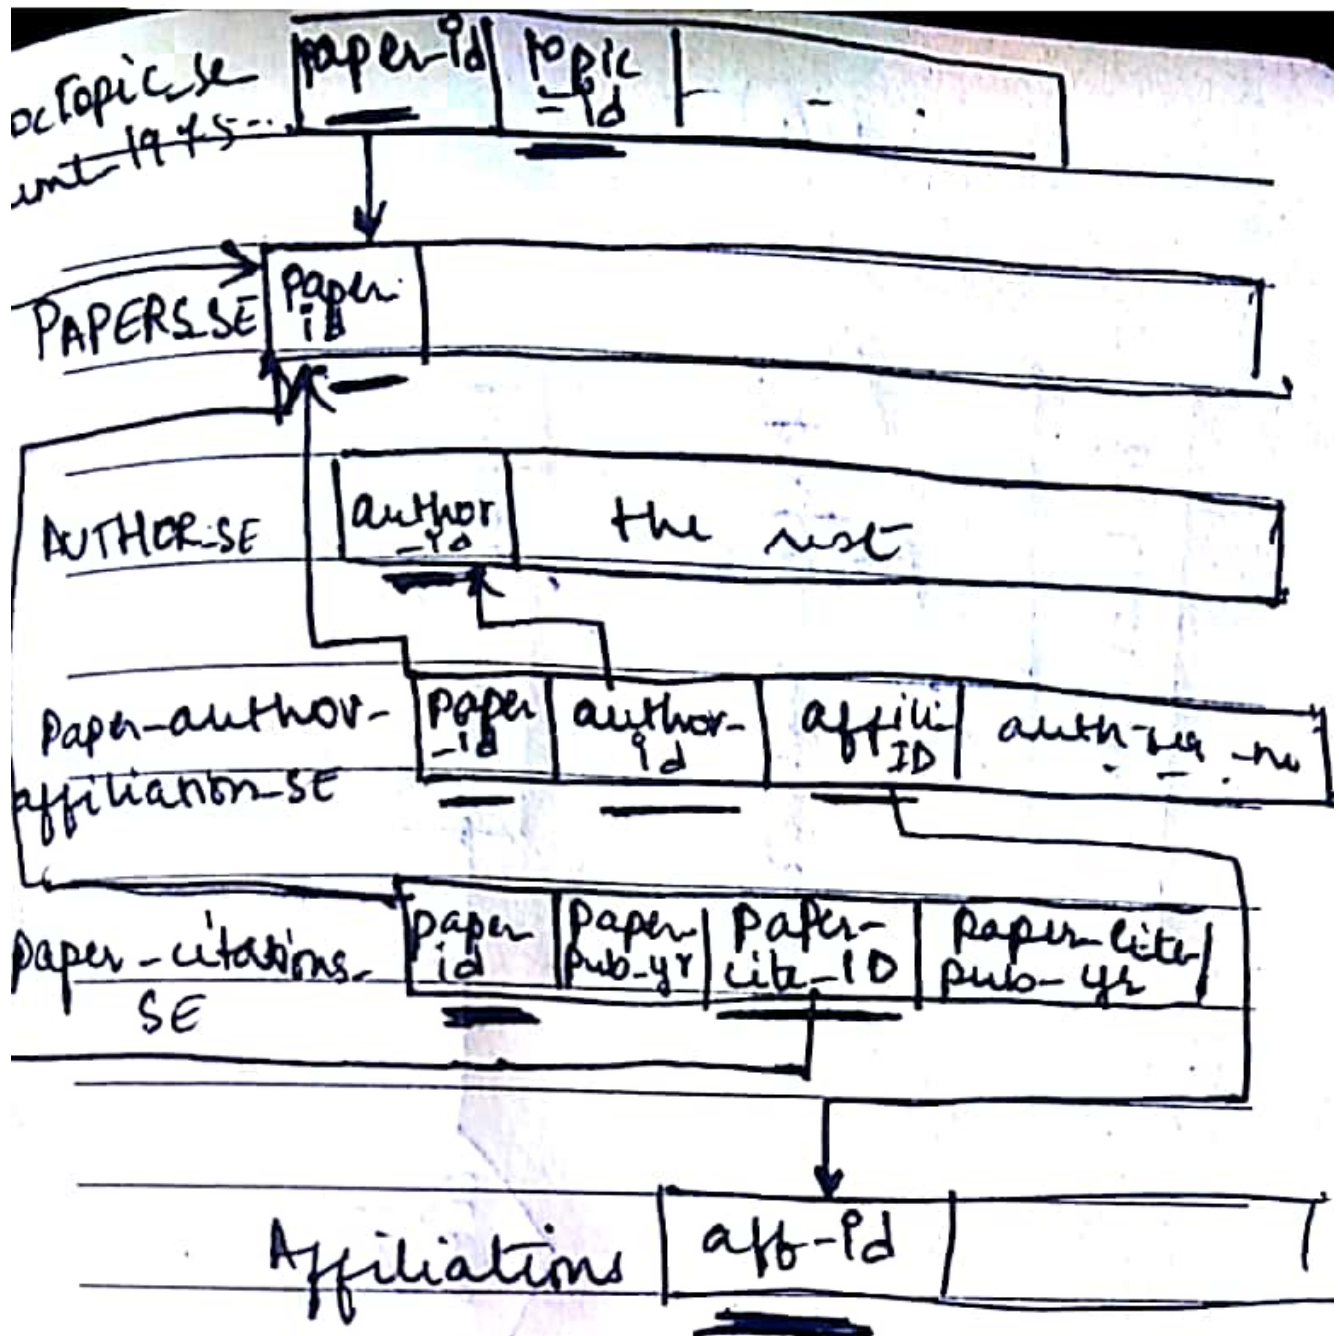 paper-id
topic
-id
ocTopic_se
umt-1975-...
PAPERS_SE
paper-
id
AUTHOR-SE
author
-id
the rest
Paper-author-
affiliation-SE
paper
-id
author-
id
affili
ID
paper-citations-
SE
paper-
id
Paper-
pub-yr
Paper-
cite-ID
Paper-cite
pub-yr
Affiliations
aff-id